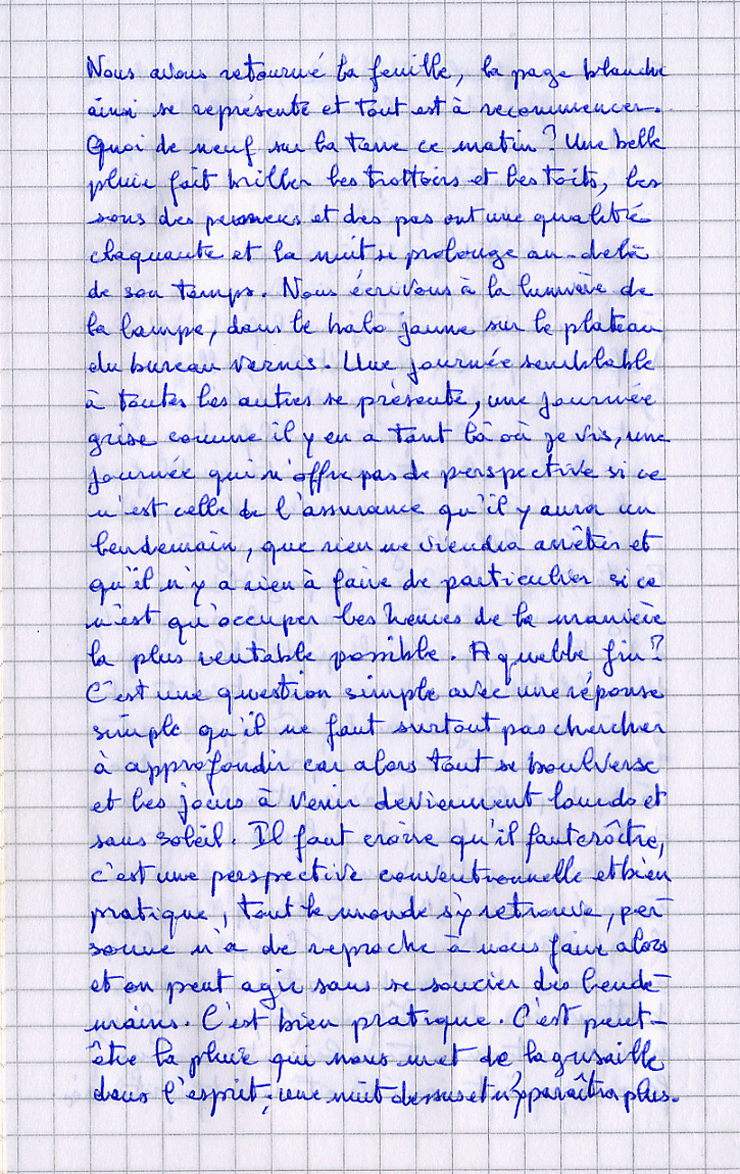 Nous avons retourné la feuille, la page blanche
ainsi se représente et tout est à recommencer.
Quoi de neuf sur la terre ce matin ? Une belle
pluie fait briller les trottoirs et les toits, les
sons des pneus et des pas ont une qualité
claquante et la nuit se prolonge au-delà
de son temps. Nous écrivons à la lumière de
la lampe, dans le halo jaune sur le plateau
du bureau vernis. Une journée semblable
à toutes les autres se présente, une journée
grise comme il y en a tant là où je vis, une
journée qui n'offre pas de perspective si ce
n'est celle de l'assurance qu'il y aura un
lendemain, que rien ne viendra arrêter et
qu'il n'y a rien à faire de particulier si ce
n'est qu'occuper les heures de la manière
la plus rentable possible. A quelle fin ?
C'est une question simple avec une réponse
simple qu'il ne faut surtout pas chercher
à approfondir car alors tout se boulverse
et les jours à venir deviennent lourds et
sans soleil. Il faut croire qu'il faut croître,
c'est une perspective conventionnelle et bien
pratique, tout le monde s'y retrouve, per-
sonne n'a de reproche à nous faire alors
et on peut agir sans se soucier des lende-
mains. C'est bien pratique. C'est peut-
être la pluie qui nous met de la grisaille
dans l'esprit ; une nuit dessus et n'y paraîtra plus.